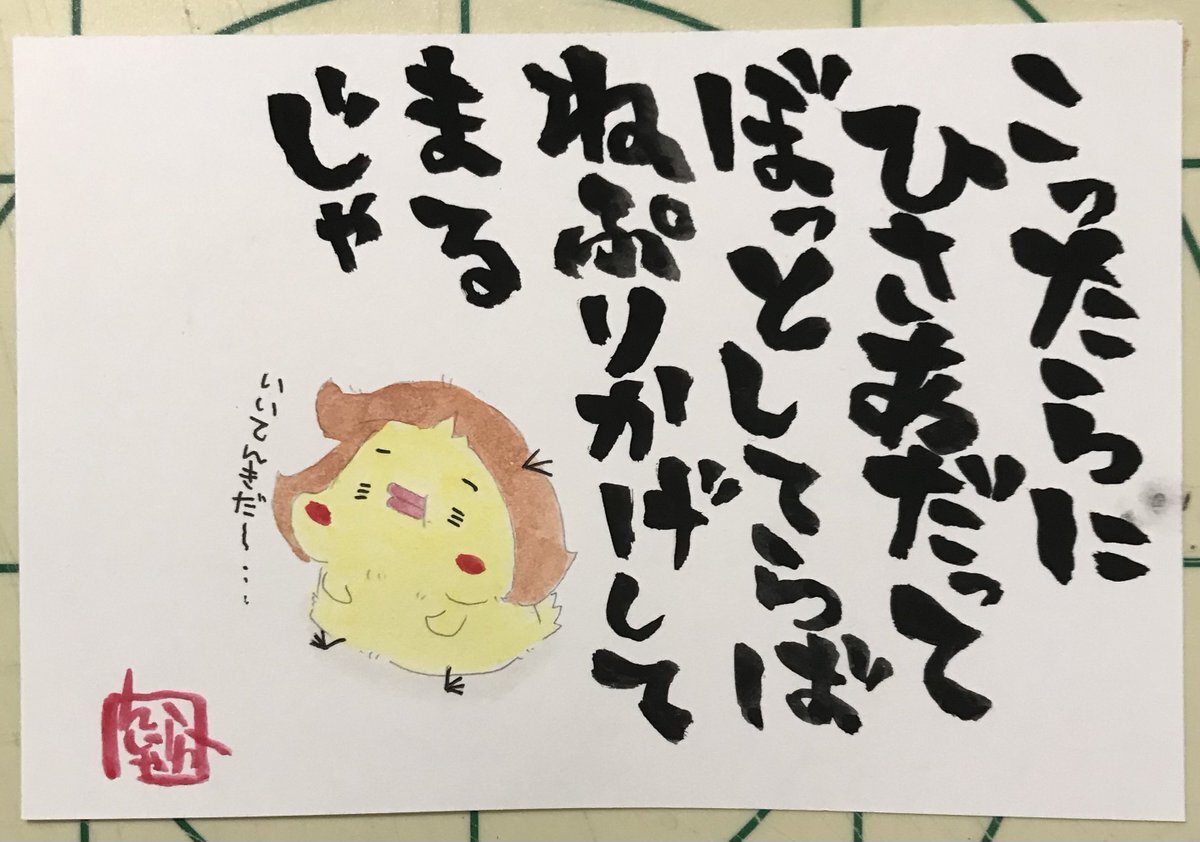 こったらに
ひさあだって
ぼっとしてらば
ねぷりかげして
まる
じゃ